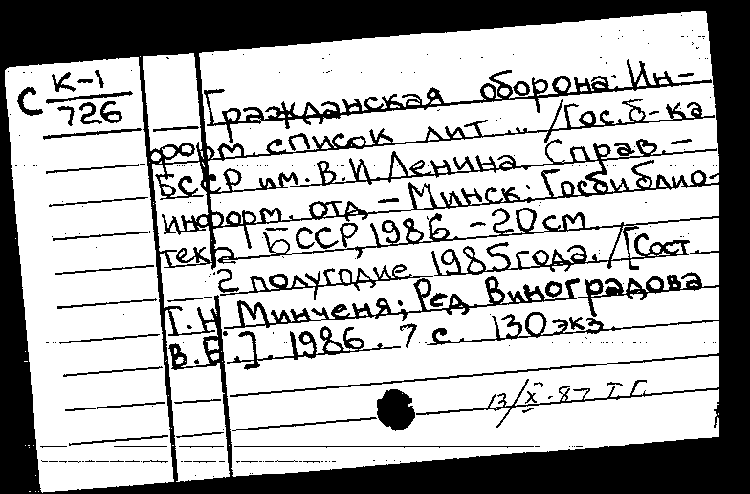 С К-1
726
Гражданская оборона: Ин-
форм. список лит ... /Гос. б-ка
БССР им. В.И. Ленина. Справ.-
информ. отд. – Минск: Госбиблио-
тека БССР, 1986. – 20 см.
2 полугодие 1985 года. / [Сост.
Т.Н. Минченя; Ред. Виноградова
В.Е.]. 1986. 7 с. 130 экз.
13/X-87 Т.Г.